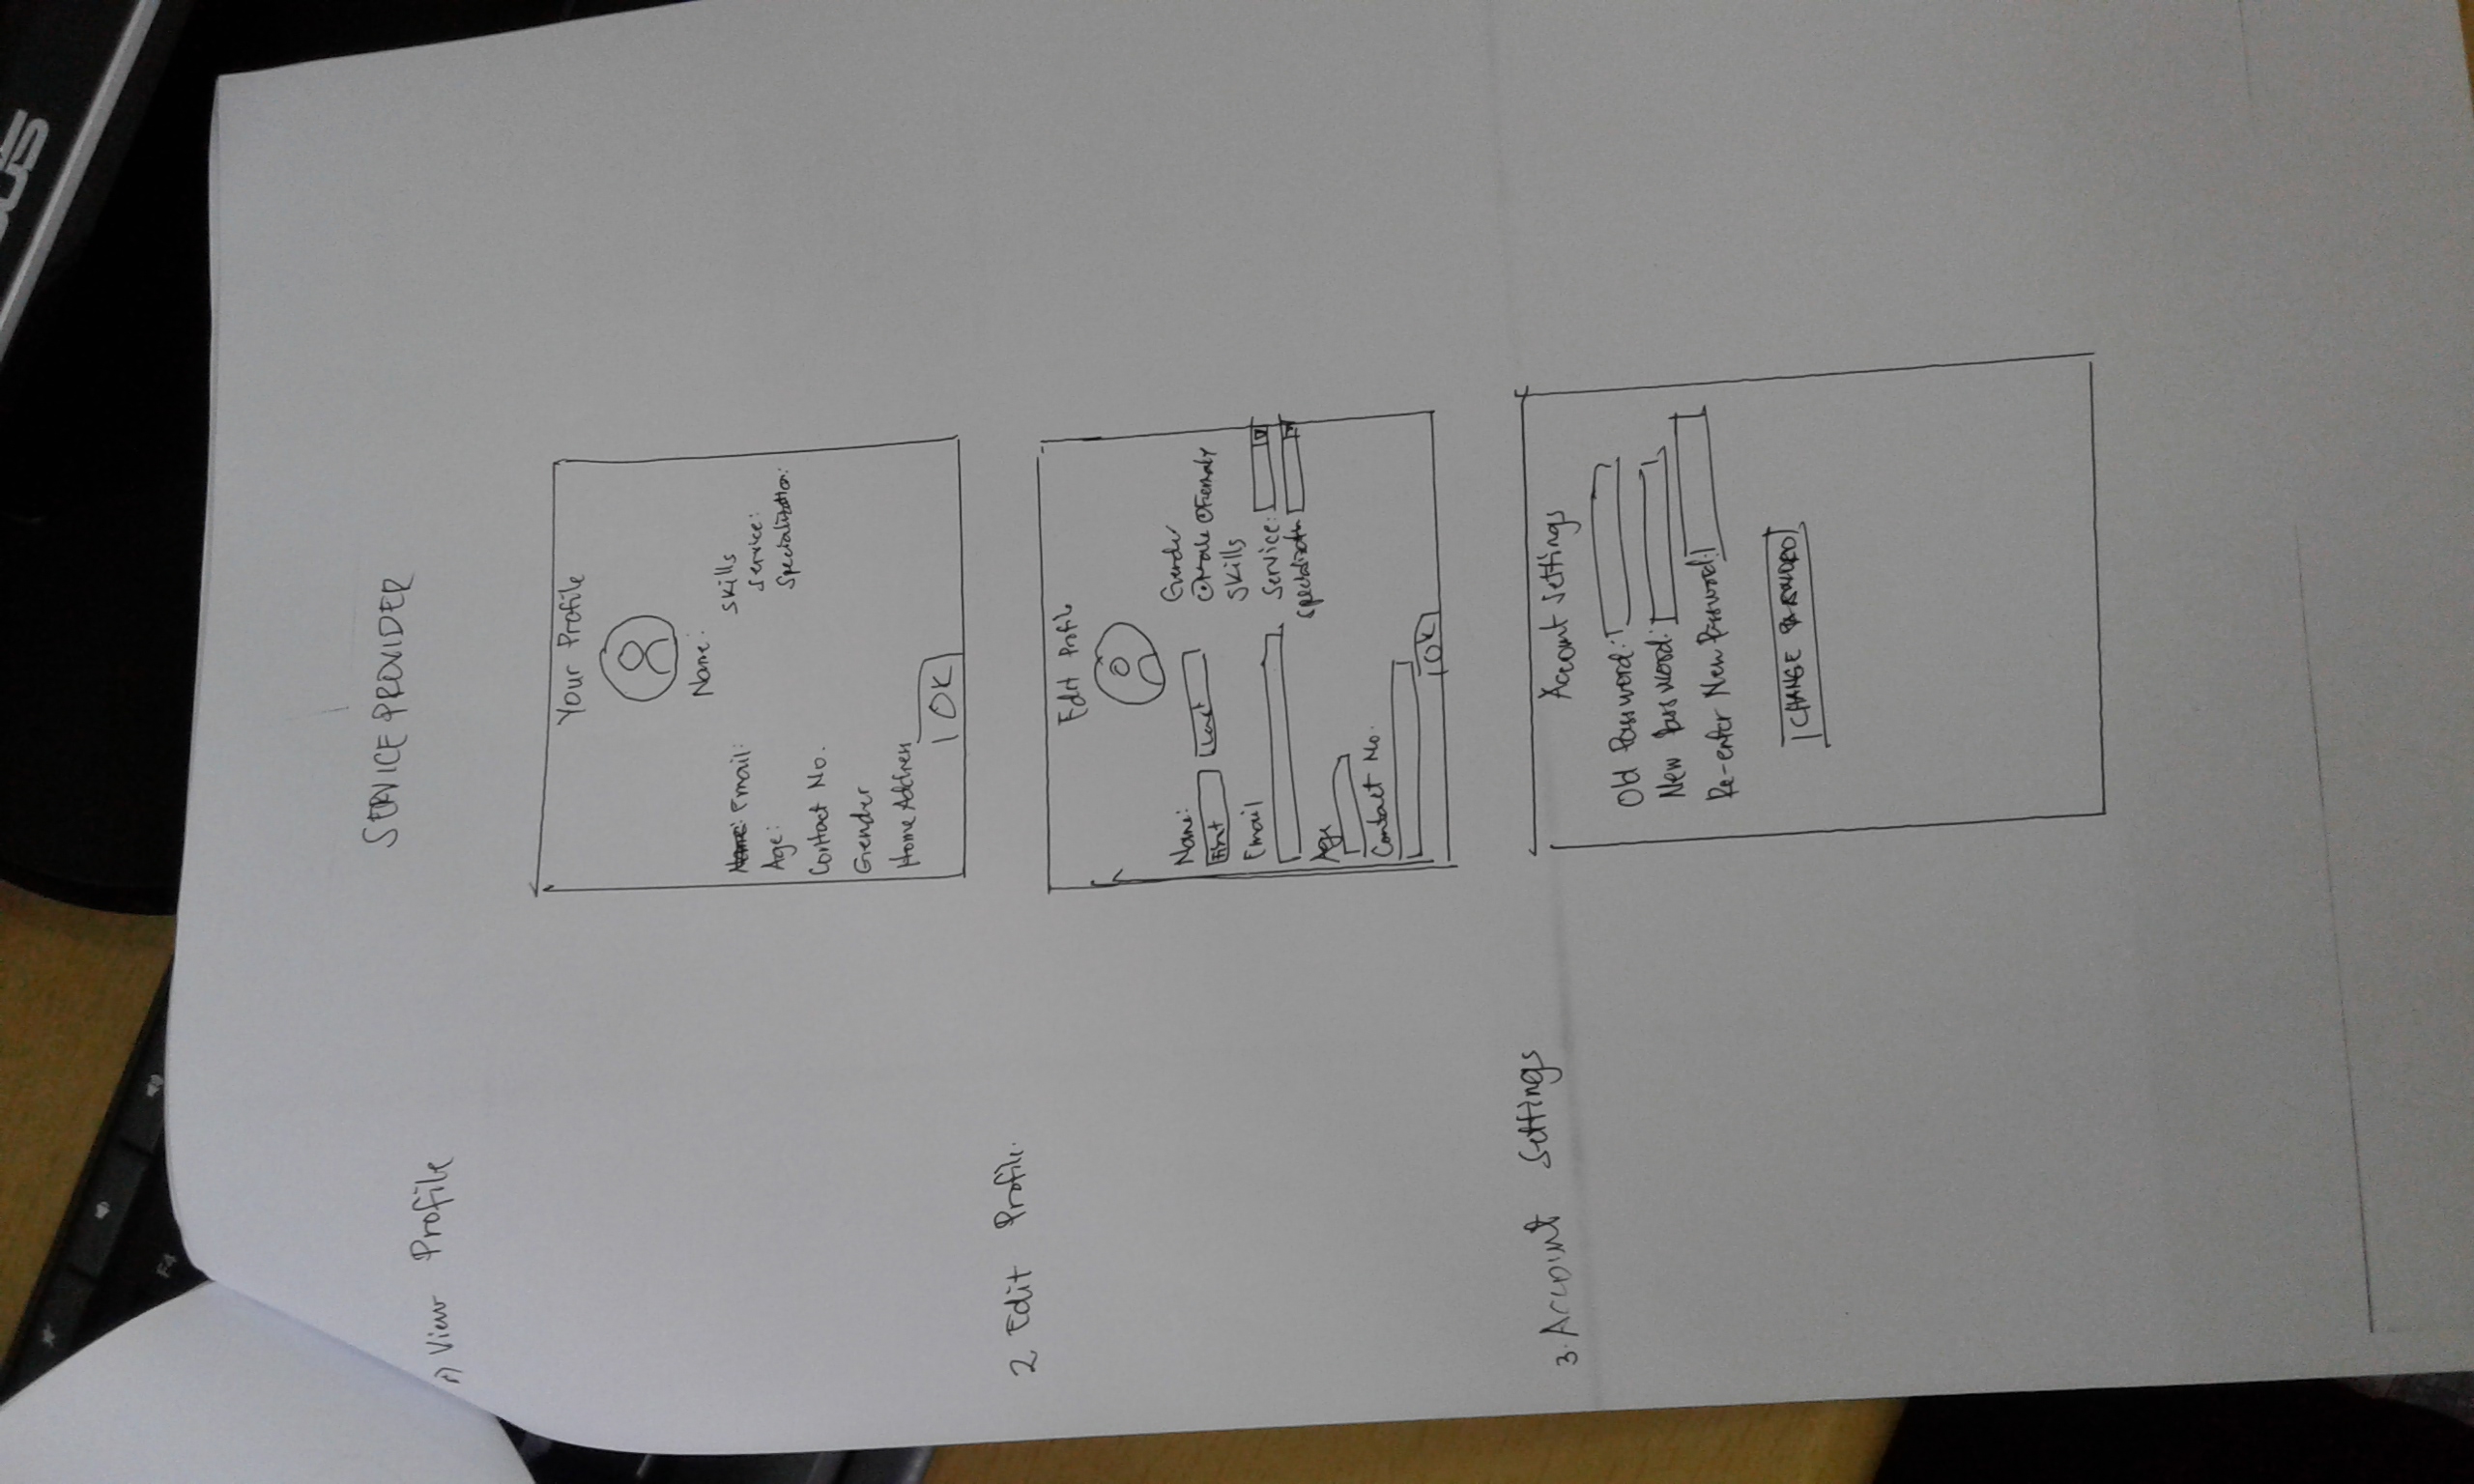 F4
SUS
SERVICE PROVIDER
1) View Profile
Your Profile
Name:
Email:
Age:
Contact No.
Gender
Home Address
Skills
Service:
Specialization:
OK
2 Edit Profile.
Edit Profile
Name:
First Last
Email
Age
Contact No.
Gender
Male Female
Skills
Service:
OK
3. Account Settings
Account Settings
Old Password:
New Password:
Re-enter New Password:
CHANGE PASSWORD